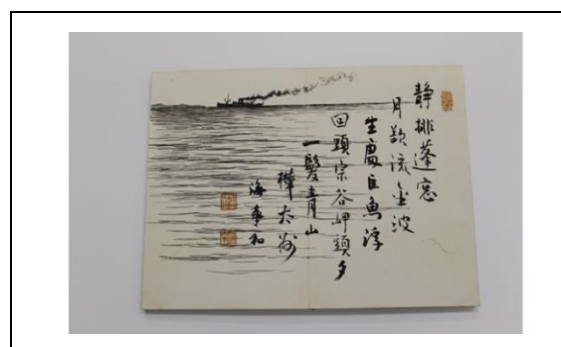 静排蓬窓
月影流金波
生處巨魚浮
回頭宗谷岬頭夕
一髪青山
樺太州
海